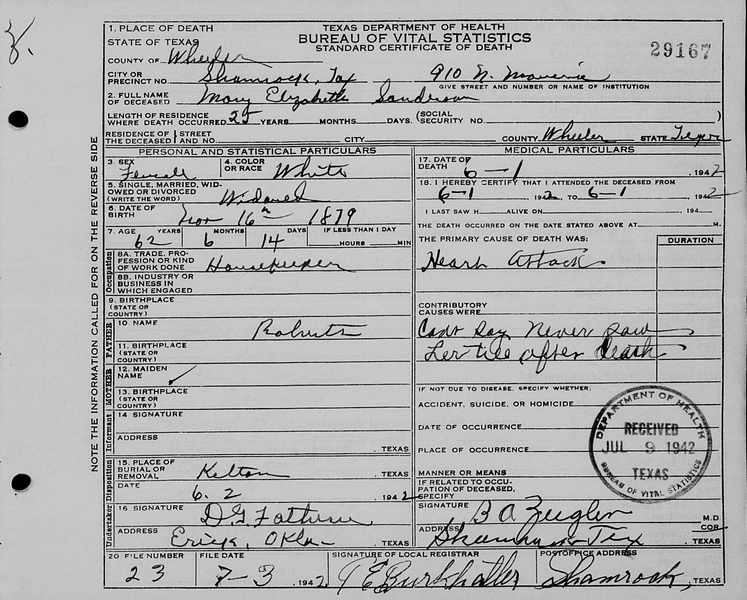 1. PLACE OF DEATH
STATE OF TEXAS
TEXAS DEPARTMENT OF HEALTH
BUREAU OF VITAL STATISTICS
STANDARD CERTIFICATE OF DEATH
29167
COUNTY OF Wheeler
CITY OR PRECINCT NO. Shamrock, Tex 910 N.
GIVE STREET AND NUMBER OR NAME OF INSTITUTION
2. FULL NAME OF DECEASED Mary Elizabeth Sanderson
LENGTH OF RESIDENCE WHERE DEATH OCCURRED 25 YEARS MONTHS DAYS. (SOCIAL SECURITY NO.
RESIDENCE OF THE DECEASED STREET AND NO. CITY COUNTY Wheeler STATE Texas
PERSONAL AND STATISTICAL PARTICULARS
3. SEX Female 4. COLOR OR RACE White
5. SINGLE, MARRIED, WIDOWED OR DIVORCED (WRITE THE WORD) Widowed
6. DATE OF BIRTH Nov 16 1879
7. AGE YEARS MONTHS DAYS IF LESS THAN 1 DAY
62 6 14 HOURS MIN
8A. TRADE, PROFESSION OR KIND OF WORK DONE Housekeeper
8B. INDUSTRY OR BUSINESS IN WHICH ENGAGED
9. BIRTHPLACE (STATE OR COUNTRY)
10. NAME Roberts
11. BIRTHPLACE (STATE OR COUNTRY)
12. MAIDEN NAME
13. BIRTHPLACE (STATE OR COUNTRY)
14. SIGNATURE
ADDRESS , TEXAS
15. PLACE OF BURIAL OR REMOVAL Kelton , TEXAS
DATE 6-2 1942
16. SIGNATURE D G
ADDRESS Erick, Okla- , TEXAS
MEDICAL PARTICULARS
17. DATE OF DEATH 6-1 , 1942
18. I HEREBY CERTIFY THAT I ATTENDED THE DECEASED FROM
6-1 1942 TO 6-1 1942
I LAST SAW H ALIVE ON , 194
THE DEATH OCCURRED ON THE DATE STATED ABOVE AT M.
THE PRIMARY CAUSE OF DEATH WAS: DURATION
Heart Attack
CONTRIBUTORY CAUSES WERE:
Cant Say Never saw
her till after Death
IF NOT DUE TO DISEASE, SPECIFY WHETHER:
ACCIDENT, SUICIDE, OR HOMICIDE
DATE OF OCCURRENCE
PLACE OF OCCURRENCE
MANNER OR MEANS
IF RELATED TO OCCUPATION OF DECEASED, SPECIFY
SIGNATURE B A Zeigler M.D
COR
ADDRESS Shamrock Tex , TEXAS
DEPARTMENT OF HEALTH
RECEIVED
JUL 9 1942
TEXAS
BUREAU OF VITAL STATISTICS
20 FILE NUMBER FILE DATE SIGNATURE OF LOCAL REGISTRAR POSTOFFICE ADDRESS
23 7-3 1942 Burkhalter Shamrock, TEXAS
NOTE THE INFORMATION CALLED FOR ON THE REVERSE SIDE
Occupation
FATHER
MOTHER
Informant
Disposition
Undertaker